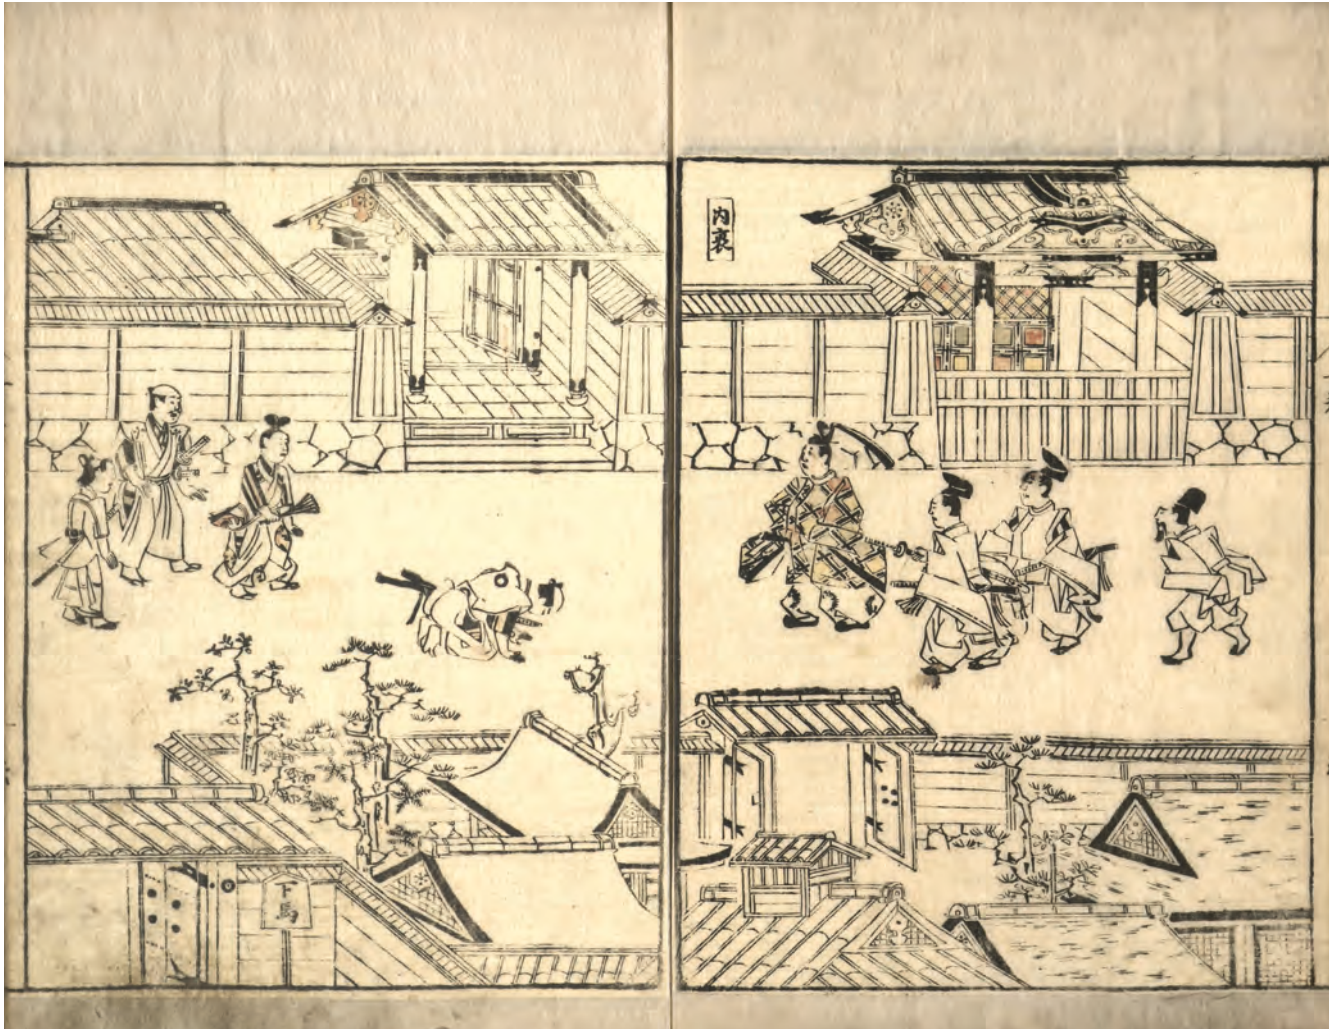 内裏
下馬